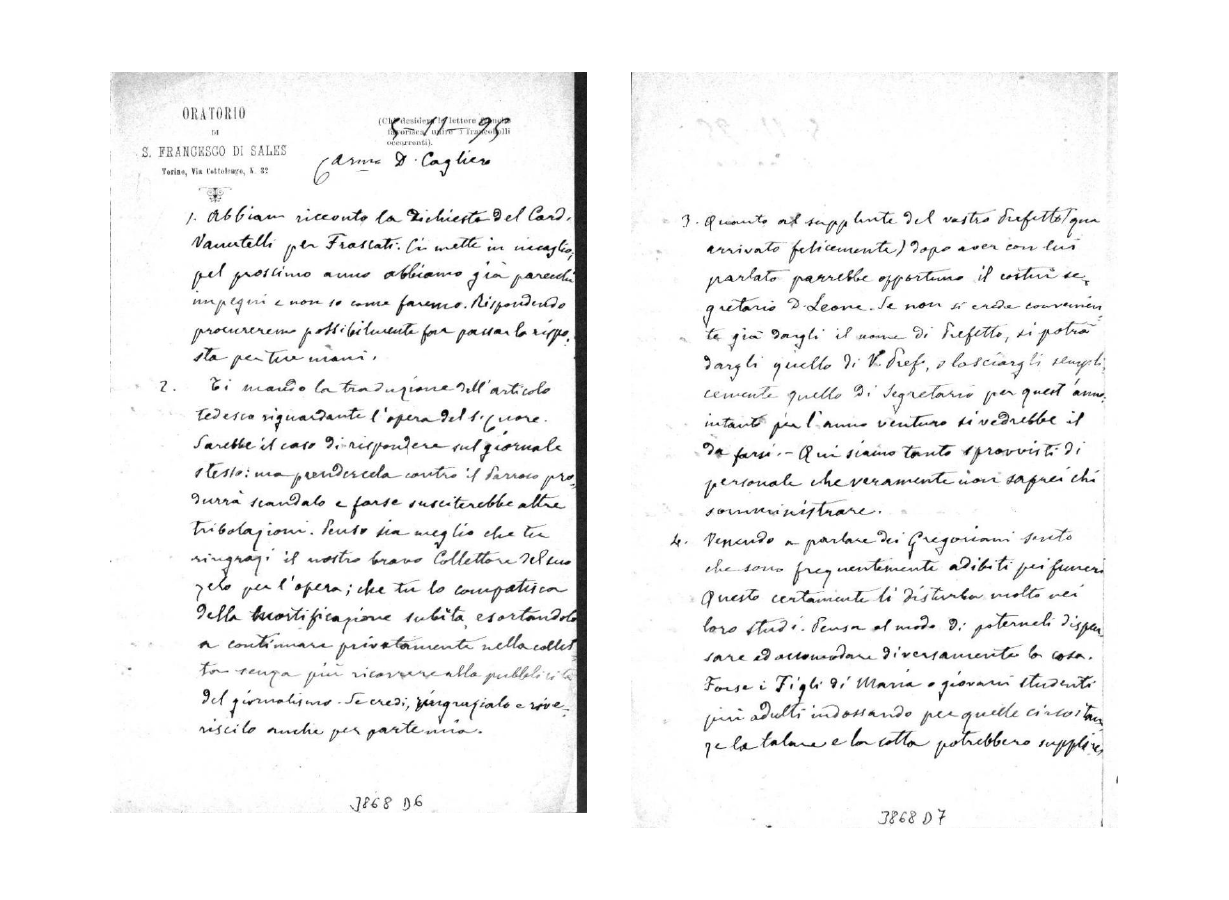 ORATORIO
DI
S. FRANCESCO DI SALES
Torino, Via Cottolengo, N. 32
(Chi desidera le lettere franche
favorisca unire i francobolli
occorrenti).
5-11-95
Carmo D. Cagliero
1. Abbiam ricevuto la richiesta del Card.
Vanutelli per Frascati. Ci mette in incaglio,
pel prossimo anno abbiamo già parecchi
impegni e non so come faremo. Rispondendo
procureremo possibilmente far passar la rispo.
sta per tue mani.
2. Ti mando la traduzione dell'articolo
tedesco riguardante l'opera del S. Cuore.
Sarebbe il caso di rispondere sul giornale
stesso: ma prendercela contro il Parroco pro,
durrà scandalo e forse susciterebbe altre
tribolazioni. Penso sia meglio che tu
ringrazi il nostro bravo Collettore del suo
zelo per l'opera; che tu lo compatisca
della mortificazione subita, esortandolo
a continuare privatamente nella collet
ta senza più ricorrere alla pubblicità
del giornalismo. Se credi, ringrazialo e rive-
riscilo anche per parte mia.
3868 D6
3. Quanto al supplente del vostro Prefetto (qua
arrivato felicemente) dopo aver con lui
parlato parrebbe opportuno il costui se-
gretario D. Leone. Se non si crede convenien
te già dargli il nome di Prefetto, si potrà
dargli quello di V. Pref., o lasciargli sempli.
cemente quello di Segretario per quest'anno.
intanto per l'anno venturo si vedrebbe il
da farsi. - Qui siamo tanto sprovvisti di
personale che veramente non saprei chi
somministrare.
4. Venendo a parlare dei Gregoriani sento
che sono frequentemente adibiti pei funeri
Questo certamente li disturba molto nei
loro studi. Pensa al modo di poterneli dispen
sare ed accomodare diversamente la cosa.
Forse i Figli di Maria o giovani studenti
più adulti indossando per quelle circostan
ze la talare e la cotta potrebbero supplire,
3868 D7